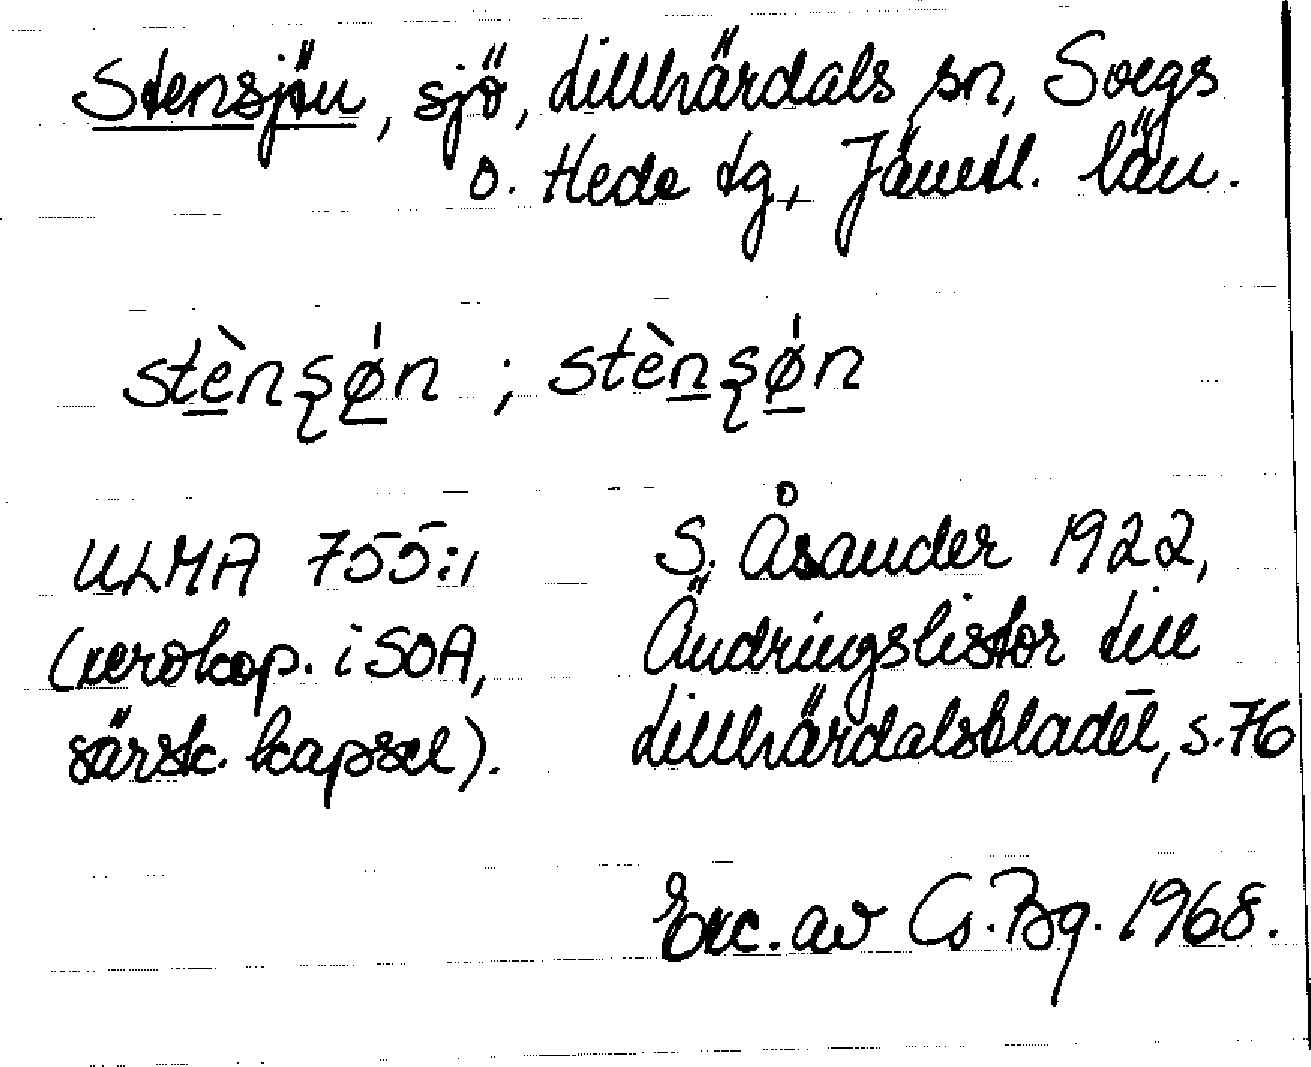 Stensjön, sjö, Lillhärdals sn, Svegs
o. Hede tg, Jämtl. län.
stènʂø̀n ; stènʂø̀n
ULMA 755:1
(xerokop. i SOA,
särsk. kapsel).
S. Åsander 1922,
Ändringslistor till
Lillhärdalsbladet, s. 76
Exc. av Cs. Bg. 1968.